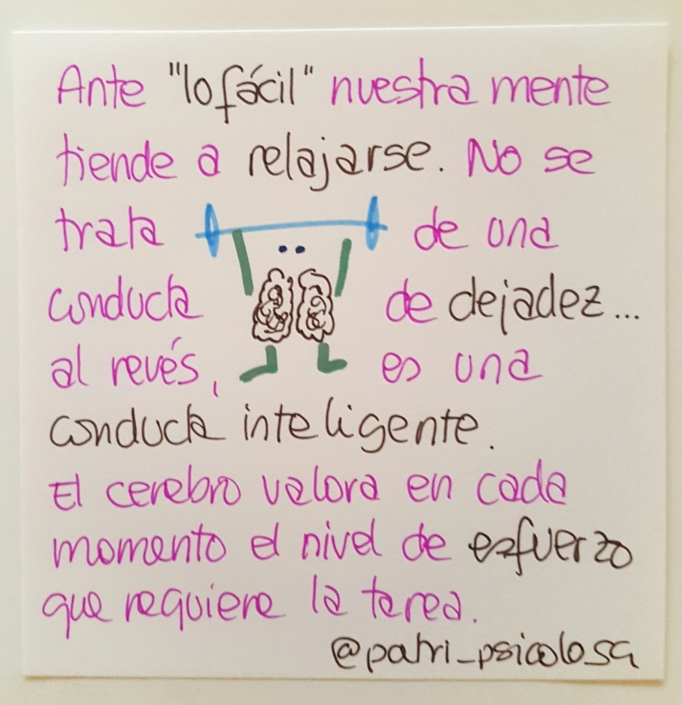 Ante "lo fácil" nuestra mente
tiende a relajarse. No se
trata de una
conducta de dejadez...
al revés, es una
conducta inteligente.
El cerebro valora en cada
momento el nivel de esfuerzo
que requiere la tarea.
@patri_psicologa